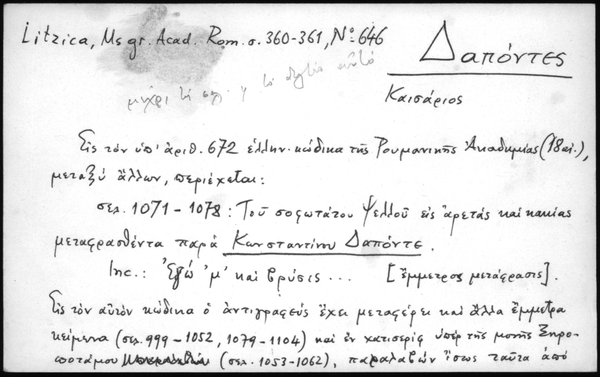 Litzica, Ms gr. Acad. Rom. σ. 360-361, Nº 646
Δαπόντες
Καισάριος
μέχρι τὶ σελ.
Εἰς τὸν ὑπ' ἀριθ. 672 ἑλλην. κώδικα τῆς Ρουμανικῆς Ἀκαδημίας (18 αἰ.),
μεταξὺ ἄλλων, περιέχεται:
σελ. 1071 - 1078 : Τοῦ σοφωτάτου Ψελλοῦ εἰς ἀρετὰς καὶ κακίας
μεταφρασθέντα παρὰ Κωνσταντίνου Δαπόντε.
Inc.: Ἐγὼ 'μ' καὶ βρύσις ... [ἔμμετρος μετάφρασις].
Εἰς τὸν αὐτὸν κώδικα ὁ ἀντιγραφεὺς ἔχει μεταφέρει καὶ ἄλλα ἔμμετρα
κείμενα (σελ. 999 - 1052, 1079 - 1104) καὶ ἓν κατισερὶφ ὑπὲρ τῆς μονῆς Ξηρο-
ποτάμου (σελ. 1053 - 1062), παραλαβὼν ἴσως ταῦτα ἀπὸ